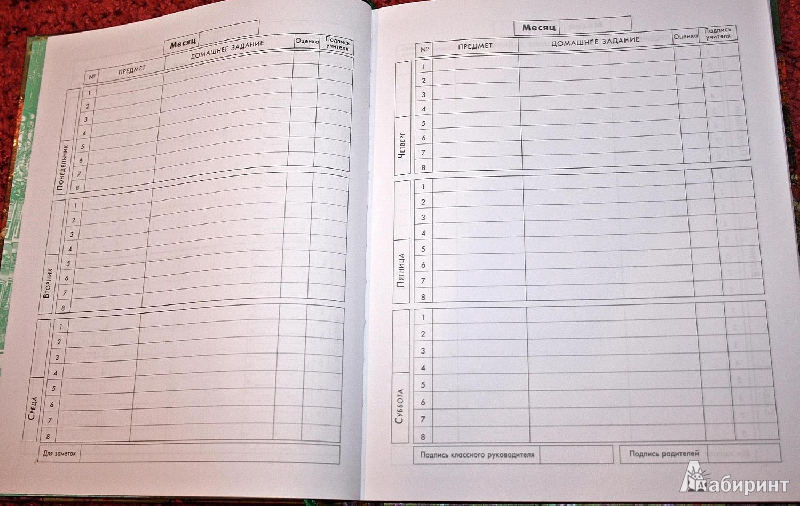 Месяц
№ ПРЕДМЕТ ДОМАШНЕЕ ЗАДАНИЕ Оценка Подпись учителя
ПОНЕДЕЛЬНИК
1
2
3
4
5
6
7
8
ВТОРНИК
1
2
3
4
5
6
7
8
СРЕДА
1
2
3
4
5
6
7
8
Для заметок
Месяц
№ ПРЕДМЕТ ДОМАШНЕЕ ЗАДАНИЕ Оценка Подпись учителя
ЧЕТВЕРГ
1
2
3
4
5
6
7
8
ПЯТНИЦА
1
2
3
4
5
6
7
8
СУББОТА
1
2
3
4
5
6
7
8
Подпись классного руководителя Подпись родителей
Лабиринт